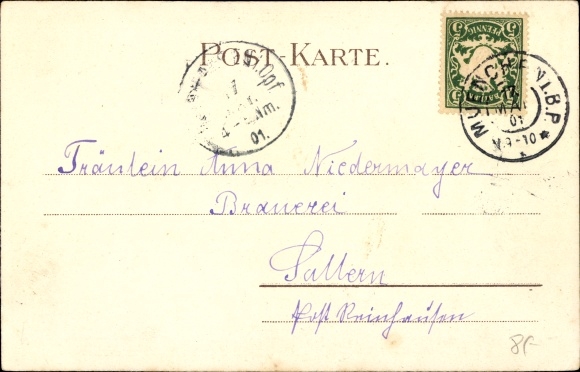 POST-KARTE.
PFENNIG
MUENCHEN I.B.P.
MAI
01
9-10
01.
Fräulein Anna Niedermayer
Brauerei
Sallern
Post Reinhausen
8f